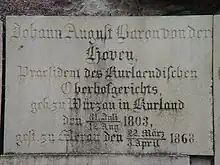 Johann August Baron von der
Hoven,
Praesident des Kurlaendischen
Oberhofgerichts,
geb. zu Würzau in Kurland
den 31. Juli 1803,
12. Aug.
gest. zu Meran den 22. März 1868.
3. April